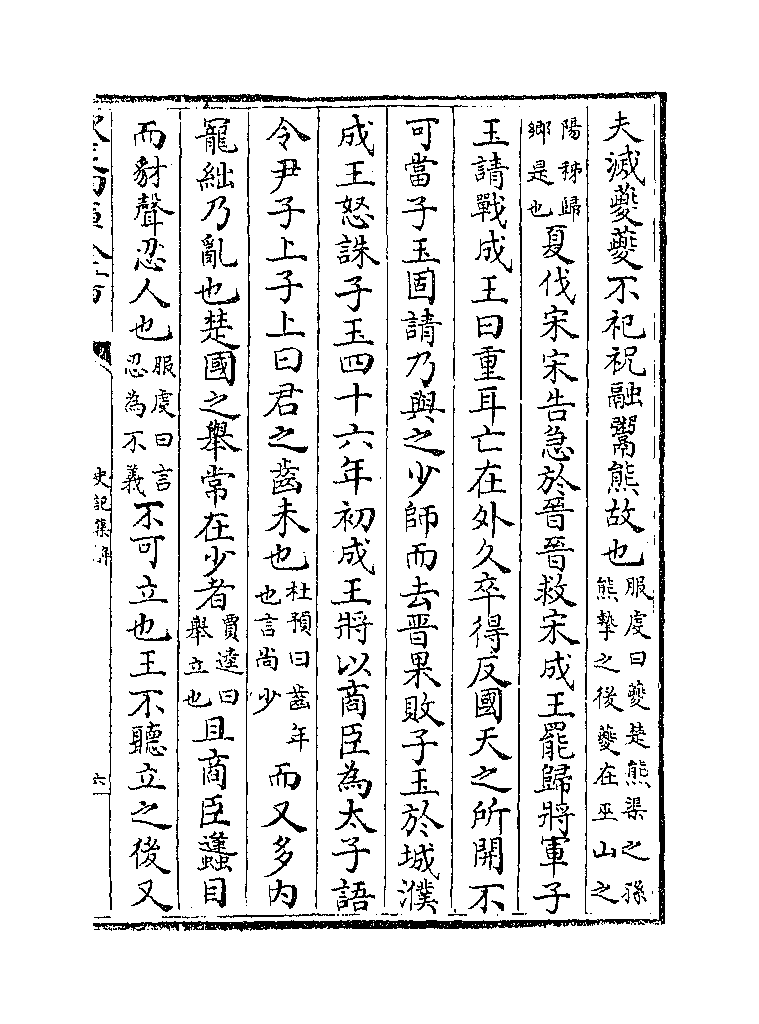 夫滅夔夔不祀祝融鬻熊故也服虔曰夔楚熊渠之孫熊摯之後夔在巫山之
陽秭歸鄉是也夏伐宋宋告急於晉晉救宋成王罷歸將軍子
玉請戰成王曰重耳亡在外久卒得反國天之所開不
可當子玉固請乃與之少師而去晉果敗子玉於城濮
成王怒誅子玉四十六年初成王將以商臣為太子語
令尹子上子上曰君之齒未也杜預曰齒年也言尚少而又多内
寵絀乃亂也楚國之舉常在少者賈逵曰舉立也且商臣蠭目
而豺聲忍人也服虔曰言忍為不義不可立也王不聽立之後又
史記集解
六